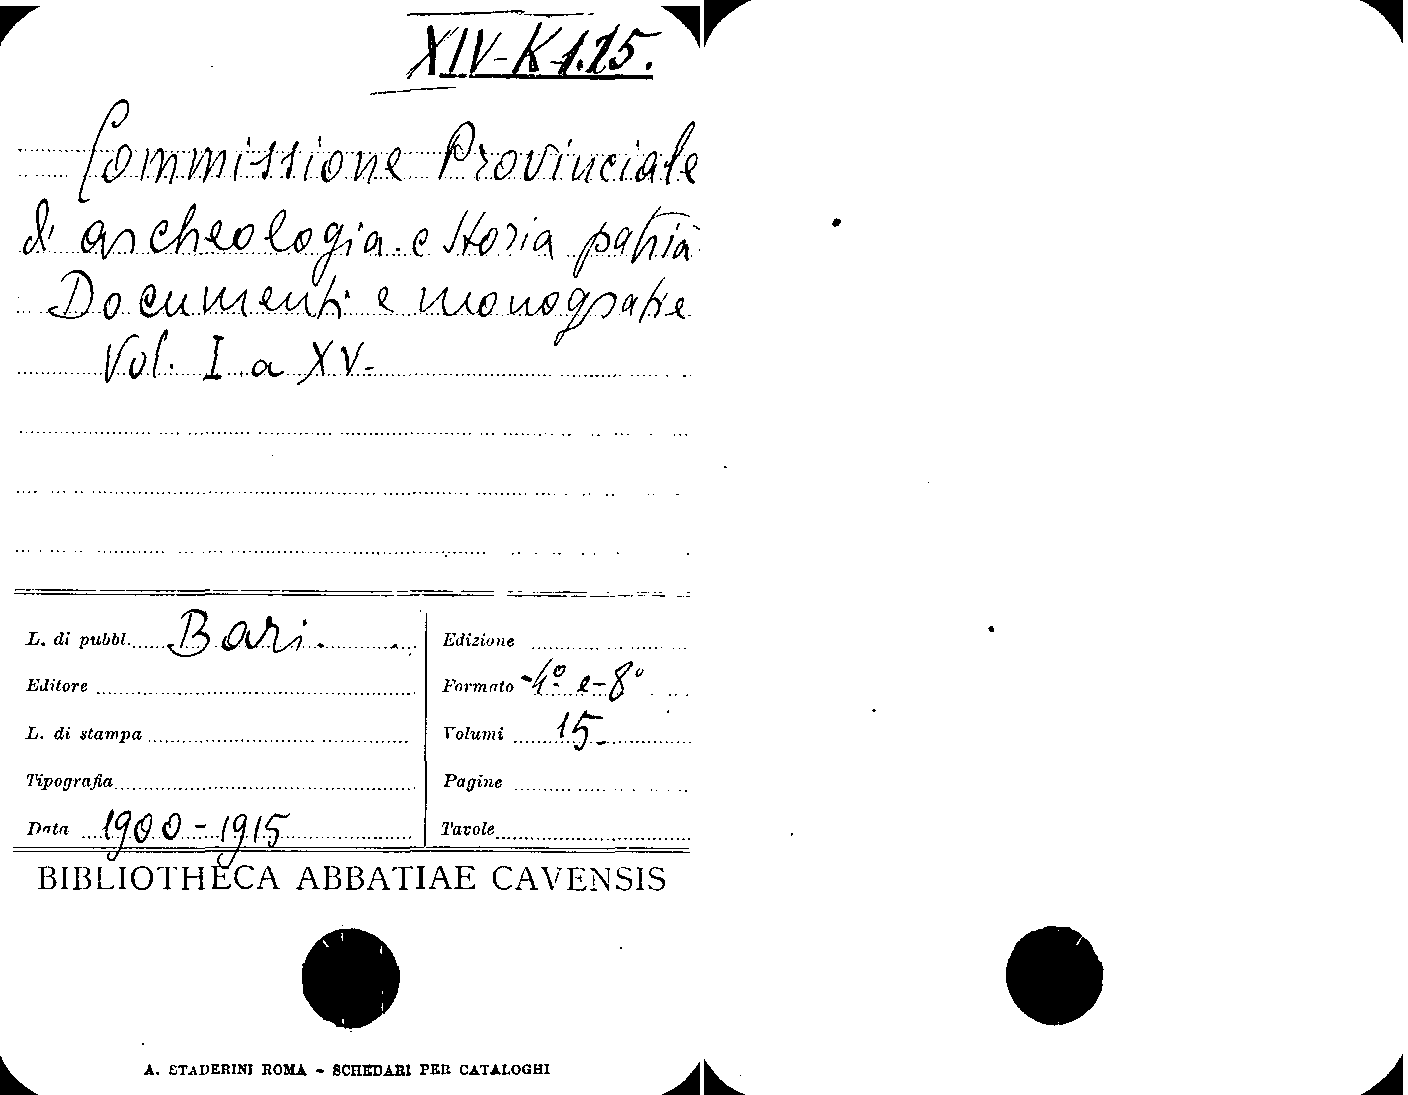 XIV-K 1.15.
Commissione Provinciale
d'archeologia e storia patria
Documenti e monografie
Vol. I a XV-
L. di pubbl. Bari.
Editore
L. di stampa
Tipografia
Data 1900-1915
Edizione
Formato 4º e 8º
Volumi 15
Pagine
Tavole
BIBLIOTHECA ABBATIAE CAVENSIS
A. STADERINI ROMA - SCHEDARI PER CATALOGHI